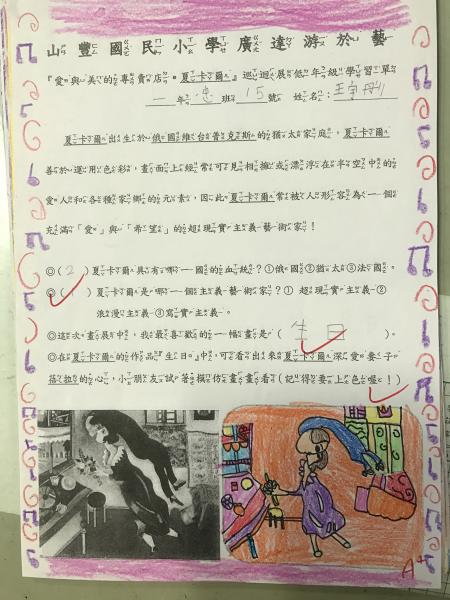 山豐國民小學廣達游於藝
『愛與美的專賣店•夏卡爾』巡迴展低年級學習單
一年忠班15號 姓名：
夏卡爾出生於俄國維台普克斯的猶太家庭，夏卡爾
善於運用色彩，畫面上經常可見相擁或漂浮在半空中的
愛人和各種家鄉的元素，因此夏卡爾常被人形容為一個
充滿「愛」與「希望」的超現實主義藝術家！
◎(2)夏卡爾具有哪一國的血統？①俄國②猶太③法國。
◎(1)夏卡爾是哪一個主義藝術家？① 超現實主義②
浪漫主義③寫實主義。
◎這次畫展中，我最喜歡的一幅畫是( 生日 )。
◎在夏卡爾的作品『生日』中，可看出來夏卡爾深愛妻子
蓓拉的心，小朋友試著模仿畫畫看(記得要上色喔！)
A+